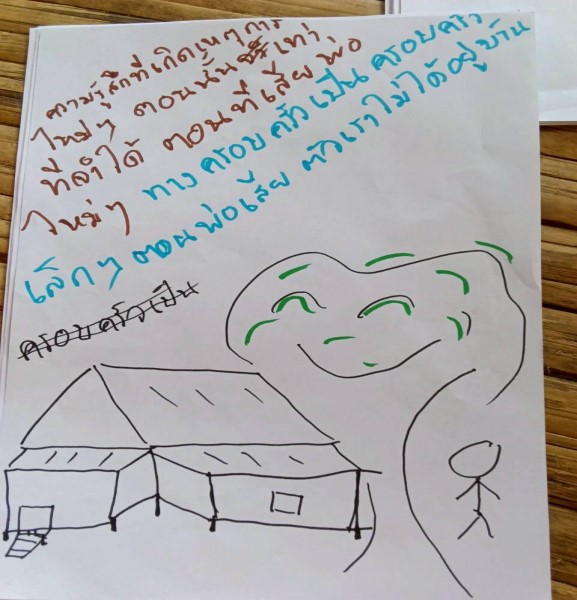 ความรู้สึกที่เกิดเหตุการ
ใหม่ๆ ตอนนั้น เท่า
ที่จำได้ ตอนที่เสียพ่อ
ใหม่ๆ ทางครอบครัวเป็นครอบครัว
เล็กๆ ตอนพ่อเสีย ตัวเราไม่ได้อยู่บ้าน
ครอบครัวเป็น